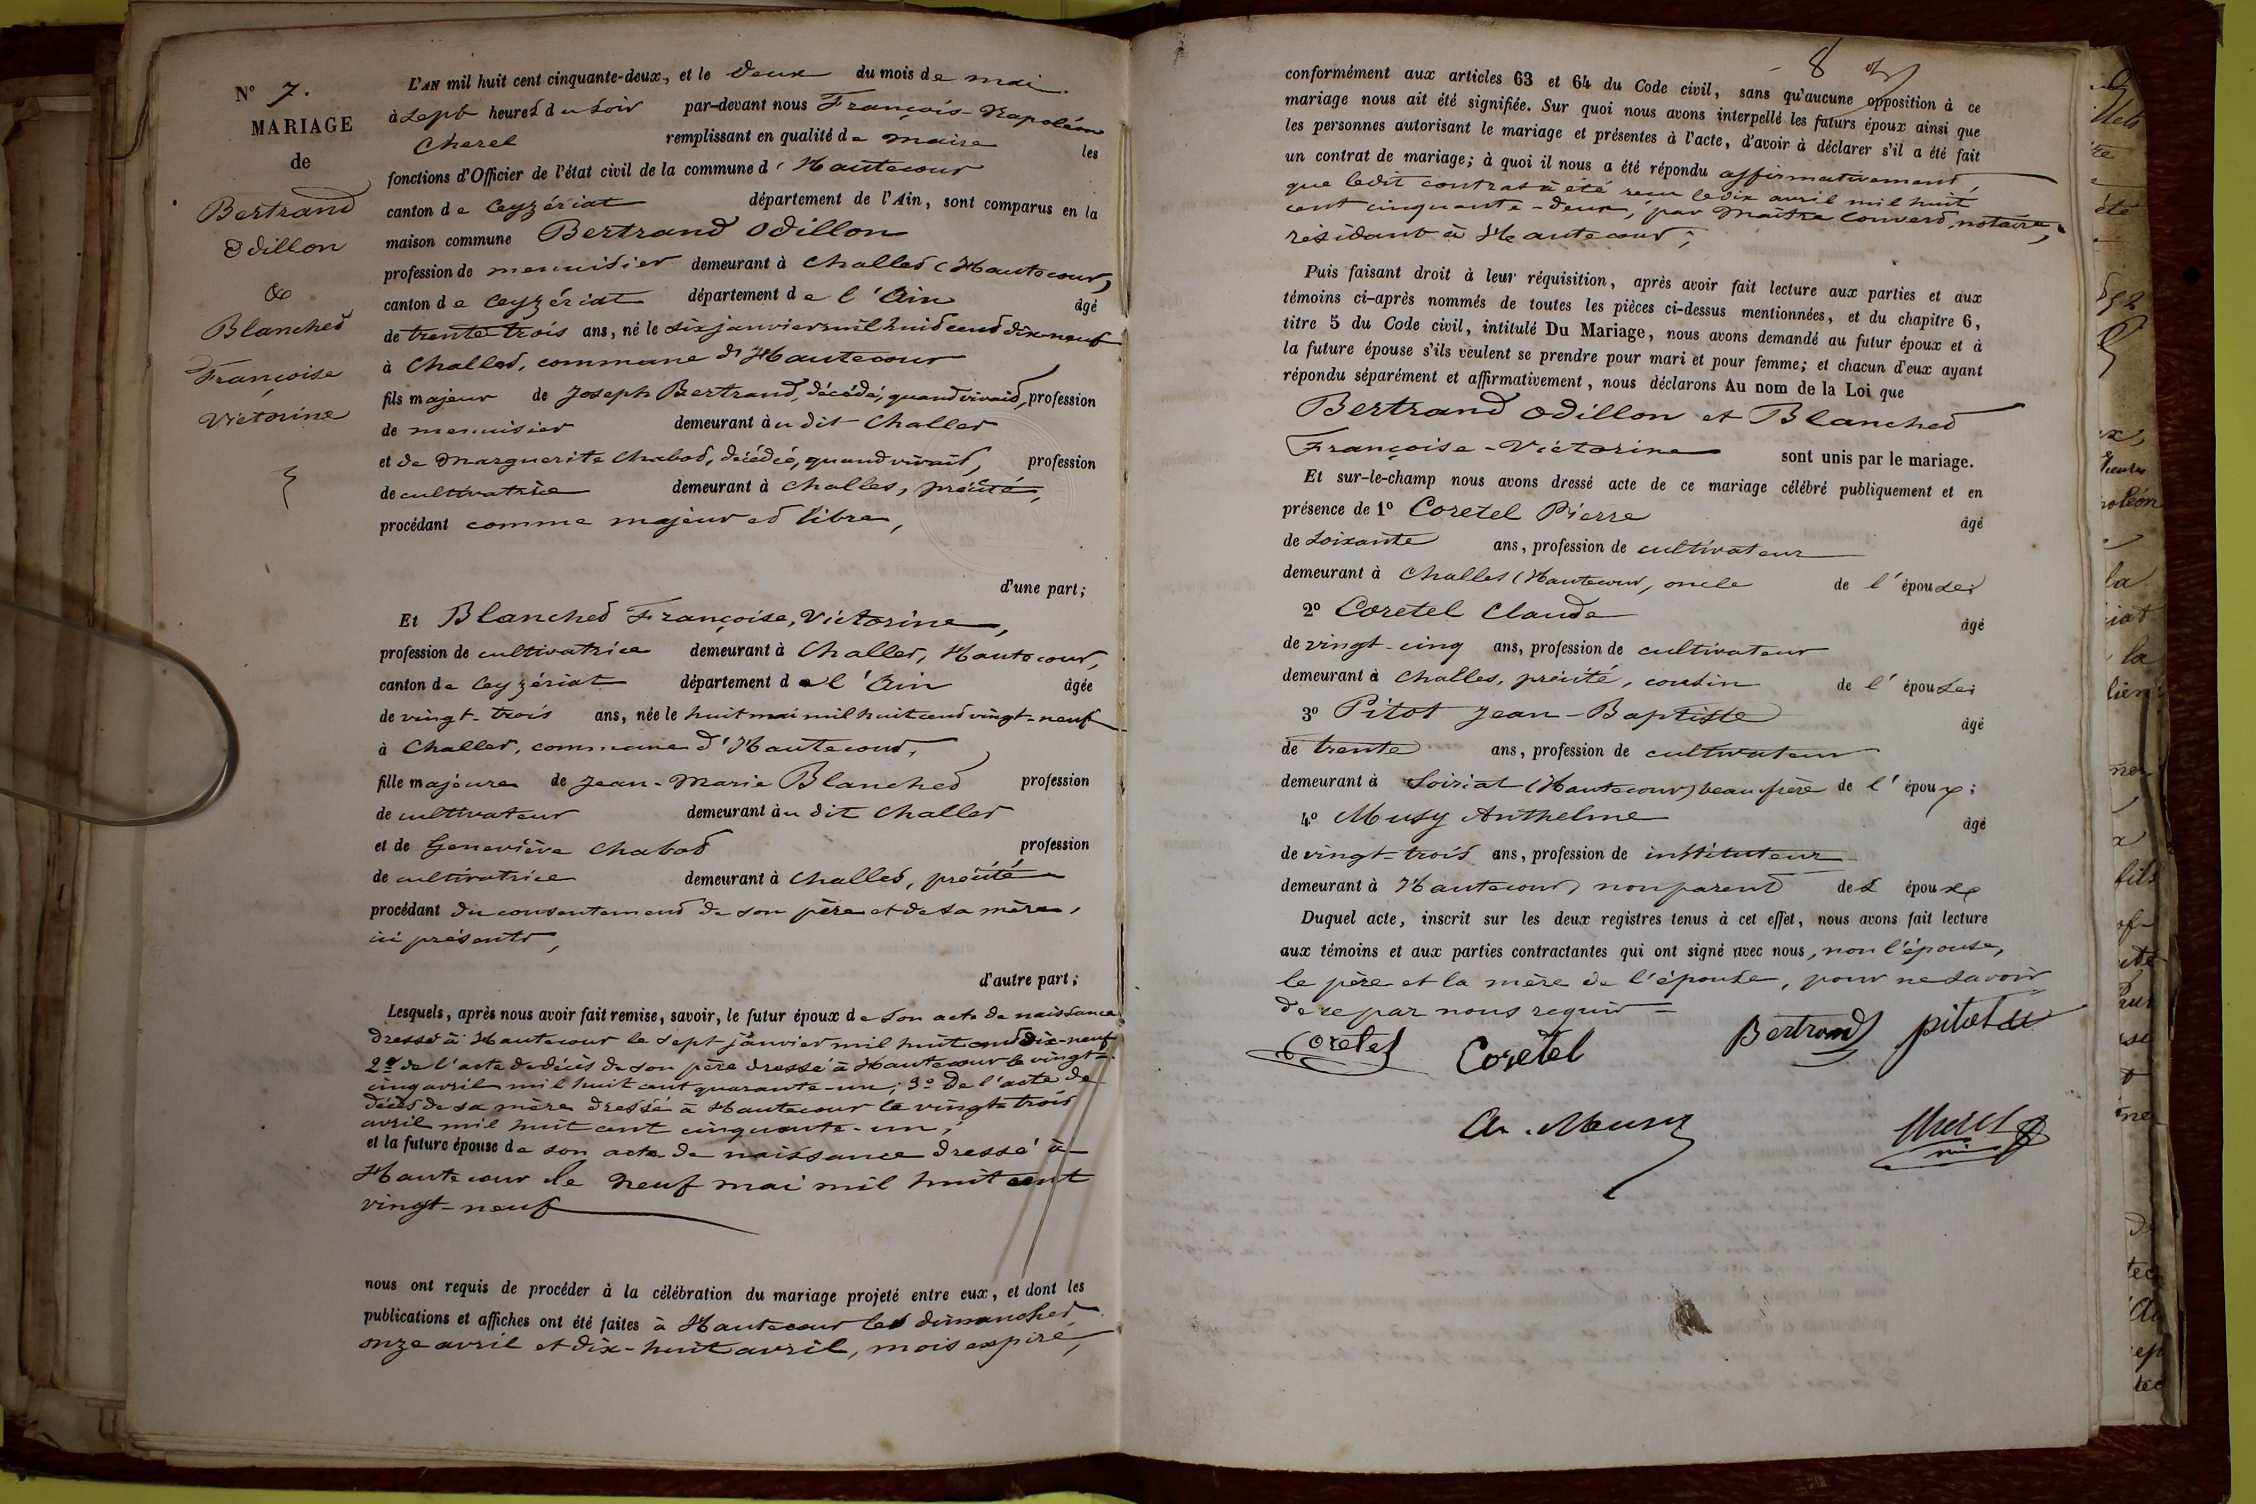 N° 7.
MARIAGE
de
Bertrand
Odillon
&
Blanched
Françoise
Victorine
L'AN mil huit cent cinquante-deux, et le deux du mois de mai
à sept heures du soir par-devant nous François-Napoléon
Cherel remplissant en qualité de maire les
fonctions d'Officier de l'état civil de la commune d'Hautecour
canton de Ceyzériat département de l'Ain, sont comparus en la
maison commune Bertrand Odillon
profession de menuisier demeurant à Challes (Hautecour)
canton de Ceyzériat département de l'Ain âgé
de trente trois ans, né le six janvier mil huit cent dix-neuf
à Challes, commune d'Hautecour
fils majeur de Joseph Bertrand, décédé, quand vivait, profession
de menuisier demeurant àu dit Challes
et de Marguerite Chabod, décédée, quand vivait, profession
de cultivatrice demeurant à Challes, précité,
procédant comme majeur et libre,
d'une part;
Et Blanched Françoise, Victorine,
profession de cultivatrice demeurant à Challes, Hautecour,
canton de Ceyzériat département de l'Ain âgée
de vingt-trois ans, née le huit mai mil huit cent vingt-neuf
à Challes, commune d'Hautecour,
fille majeure de Jean-Marie Blanched profession
de cultivateur demeurant àu dit Challes
et de Geneviève Chabod profession
de cultivatrice demeurant à Challes, précité
procédant du consentement de son père et de sa mère,
ici présents,
d'autre part;
Lesquels, après nous avoir fait remise, savoir, le futur époux de son acte de naissance
dressé à Hautecour le sept janvier mil huit cent dix-neuf
2° de l'acte de décès de son père dressé à Hautecour le vingt-
cinq avril mil huit cent quarante-un; 3° De l'acte de
décès de sa mère dressé à Hautecour le vingt trois
avril mil huit cent cinquante-un;
et la future épouse de son acte de naissance dressé à
Hautecour le neuf mai mil huit cent
vingt-neuf
nous ont requis de procéder à la célébration du mariage projeté entre eux, et dont les
publications et affiches ont été faites à Hautecour les dimanches
onze avril et dix-huit avril, mois expiré,
8
conformément aux articles 63 et 64 du Code civil, sans qu'aucune opposition à ce
mariage nous ait été signifiée. Sur quoi nous avons interpellé les futurs époux ainsi que
les personnes autorisant le mariage et présentes à l'acte, d'avoir à déclarer s'il a été fait
un contrat de mariage; à quoi il nous a été répondu affirmativement,
que ledit contrat à été reçu le dix avril mil huit
cent cinquante-deux, par Maître Converd, notaire,
résidant à Hautecour;
Puis faisant droit à leur réquisition, après avoir fait lecture aux parties et aux
témoins ci-après nommés de toutes les pièces ci-dessus mentionnées, et du chapitre 6,
titre 5 du Code civil, intitulé Du Mariage, nous avons demandé au futur époux et à
la future épouse s'ils veulent se prendre pour mari et pour femme; et chacun d'eux ayant
répondu séparément et affirmativement, nous déclarons Au nom de la Loi que
Bertrand Odillon et Blanched
Françoise-Victorine sont unis par le mariage.
Et sur-le-champ nous avons dressé acte de ce mariage célébré publiquement et en
présence de 1° Coretel Pierre âgé
de soixante ans, profession de cultivateur
demeurant à Challes (Hautecour, oncle de l'épouse;
2° Coretel Claude âgé
de vingt-cinq ans, profession de cultivateur
demeurant à Challes, précité, cousin de l'épouse;
3° Pitot Jean-Baptiste âgé
de trente ans, profession de cultivateur
demeurant à Soiriat (Hautecour) beau frère de l'époux;
4° Musy Anthelme âgé
de vingt-trois ans, profession de instituteur
demeurant à Hautecour, non parent des époux
Duquel acte, inscrit sur les deux registres tenus à cet effet, nous avons fait lecture
aux témoins et aux parties contractantes qui ont signé avec nous, non l'épouse,
le père et la mère de l'épouse, pour ne savoir
de ce par nous requis
Coretel Coretel Bertrand pitot
An. Musy Cherel